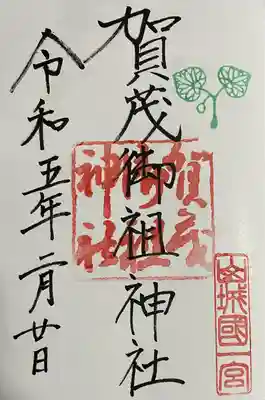 賀茂御祖神社
賀茂御祖神社
山城國一宮
令和五年二月廿日